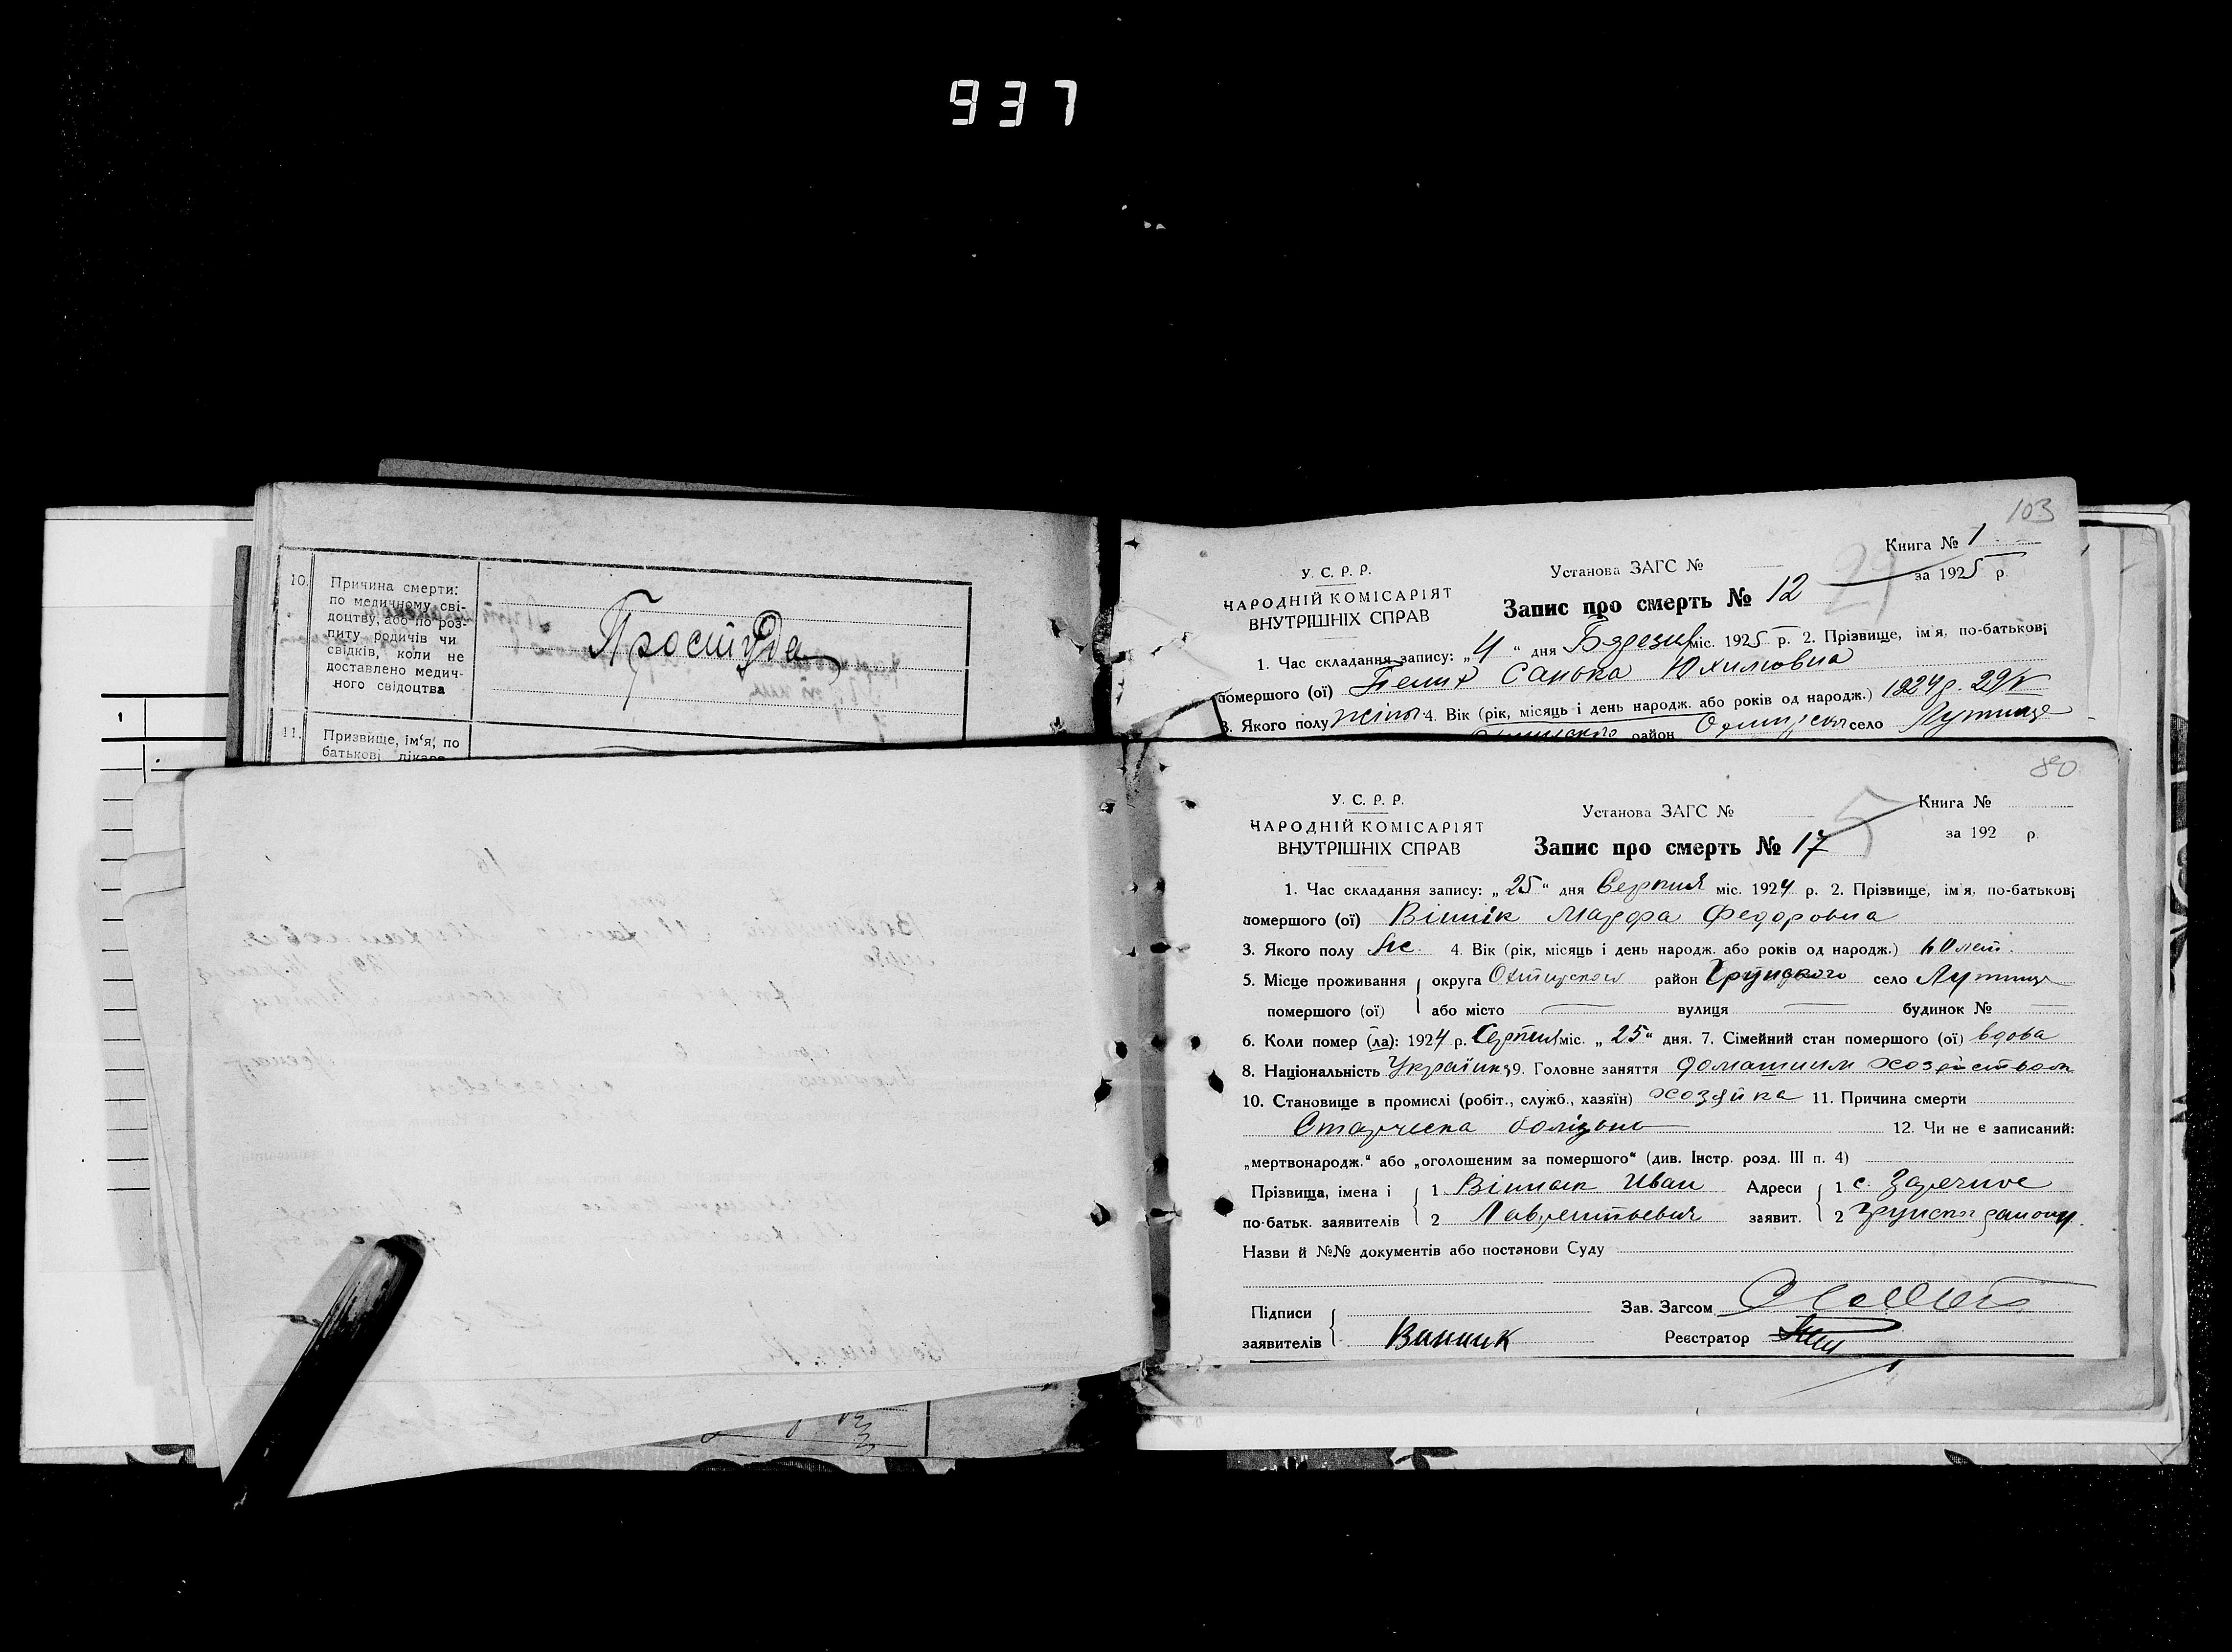 937
10. Причина смерти:
по медичному сві-
доцтву, або по роз-
питу родичів чи
свідків, коли не
доставлено медич-
ного свідоцтва
Простуда
11. Призвище, ім'я, по
батькові лікаря
1
103
Книга № 1
У. С. Р. Р.
Установа ЗАГС №
за 1925 р.
НАРОДНІЙ КОМІСАРІЯТ
ВНУТРІШНІХ СПРАВ
Запис про смерть № 12
1. Час складання запису: „4“ дня міс. 1925 р. 2. Прізвище, ім'я, по-батькові
помершого (ої) Санька Юхимовна
3. Якого полу жіно 4. Вік (рік, місяць і день народж. або років од народж.) 1924 р.
район село Лутище
80
У. С. Р. Р.
Установа ЗАГС №
Книга №
НАРОДНІЙ КОМІСАРІЯТ
за 192 р.
ВНУТРІШНІХ СПРАВ
Запис про смерть № 17
5
1. Час складання запису: „25“ дня Серпня міс. 1924 р. 2. Прізвище, ім'я, по-батькові
помершого (ої) Вінник Марфа Федоровна
3. Якого полу Же. 4. Вік (рік, місяць і день народж. або років од народж.) 60 лет.
5. Місце проживання округа район Грунского село Лутище
помершого (ої) або місто — вулиця — будинок №
6. Коли помер (ла): 1924 р. Серпня міс. „25“ дня. 7. Сімейний стан помершого (ої) вдова
8. Національність Українка 9. Головне заняття домашним хозяйством
10. Становище в промислі (робіт., служб., хазяїн) хозяйка 11. Причина смерти
Старческа болізнь 12. Чи не є записаний:
„мертвонародж.“ або „оголошеним за помершого“ (див. Інстр. розд. III п. 4)
Прізвища, імена і 1 Вінник Иван Адреси 1 с. Заречное
по-батьк. заявителів 2 Лаврентьевич заявит. 2
Назви й №№ документів або постанови Суду
Підписи Зав. Загсом
заявителів Винник Реєстратор